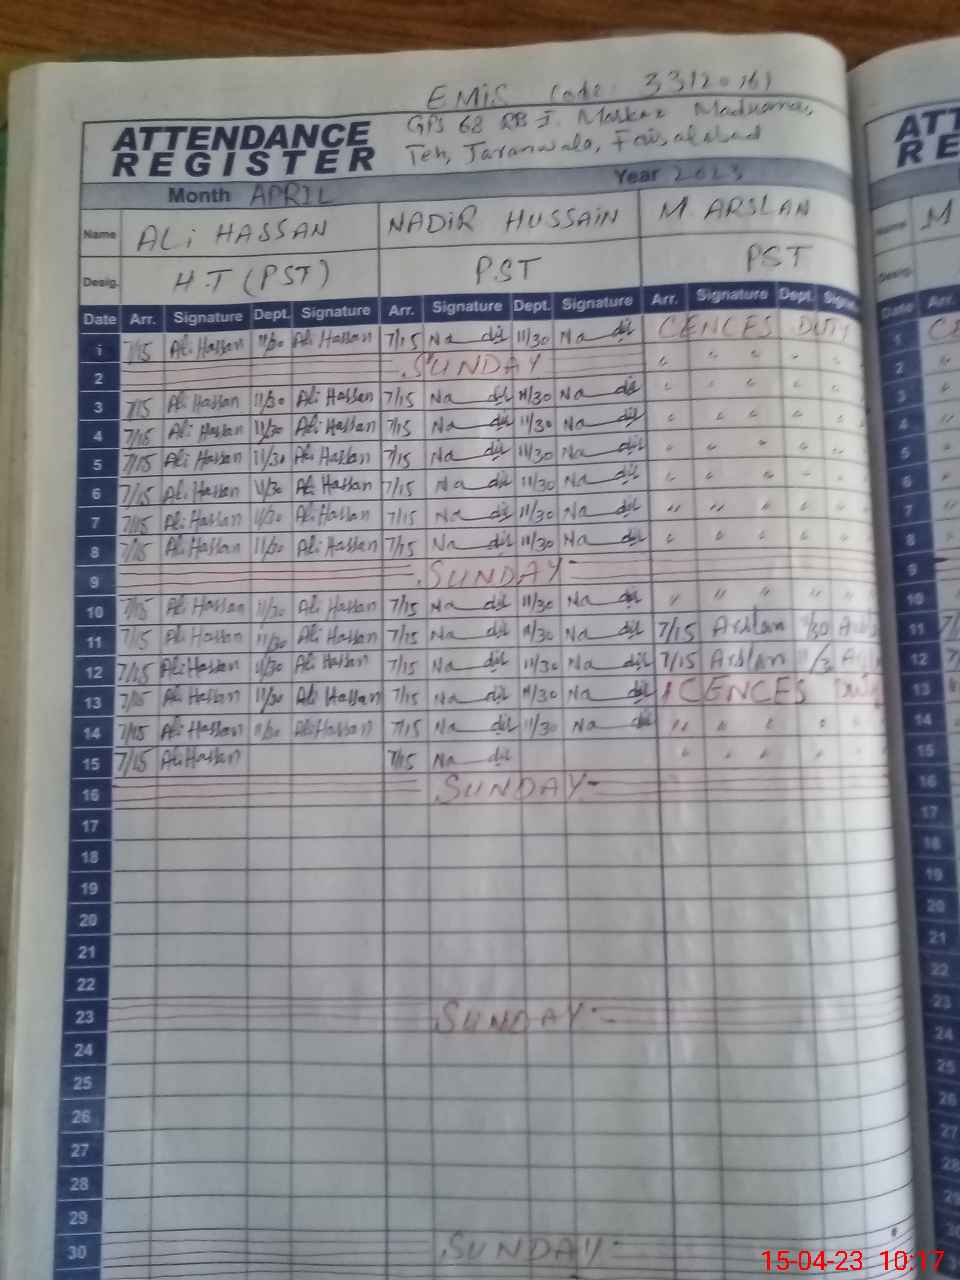 EMiS Code: 33120161
ATTENDANCE REGISTER
GPS 68 RB J. Markaz
Teh, Jaranwala, Faisalabad
Month APRIL Year 2023
Name ALi HASSAN NADiR HUSSAiN M ARSLAN
Desig. H.T (PST) PST PST
Date Arr. Signature Dept. Signature Arr. Signature Dept. Signature Arr. Signature Dept.
1 7/15 Ali Hassan 11/30 Ali Hassan 7/15 Na dil 11/30 Na dil CENCES DUTY
2 SUNDAY " " " " "
3 7/15 Ali Hassan 11/30 Ali Hassan 7/15 Na dil 11/30 Na dil " " " " "
4 7/15 Ali Hassan 11/30 Ali Hassan 7/15 Na dil 11/30 Na dil " " " " "
5 7/15 Ali Hassan 11/30 Ali Hassan 7/15 Na dil 11/30 Na dil " " " " "
6 7/15 Ali Hassan 11/30 Ali Hassan 7/15 Na dil 11/30 Na dil " " " " "
7 7/15 Ali Hassan 11/30 Ali Hassan 7/15 Na dil 11/30 Na dil " " " " "
8 7/15 Ali Hassan 11/30 Ali Hassan 7/15 Na dil 11/30 Na dil " " " " "
9 SUNDAY
10 7/15 Ali Hassan 11/30 Ali Hassan 7/15 Na dil 11/30 Na dil " " " " "
11 7/15 Ali Hassan 11/30 Ali Hassan 7/15 Na dil 11/30 Na dil 7/15 Arslan 11/30
12 7/15 Ali Hassan 11/30 Ali Hassan 7/15 Na dil 11/30 Na dil 7/15 Arslan
13 7/15 Ali Hassan 11/30 Ali Hassan 7/15 Na dil 11/30 Na dil CENCES DUTY
14 7/15 Ali Hassan 11/30 Ali Hassan 7/15 Na dil 11/30 Na dil " " " " "
15 7/15 Ali Hassan 7/15 Na dil " " " " "
16 SUNDAY
17
18
19
20
21
22
23 SUNDAY
24
25
26
27
28
29
30 SUNDAY
15-04-23 10:17